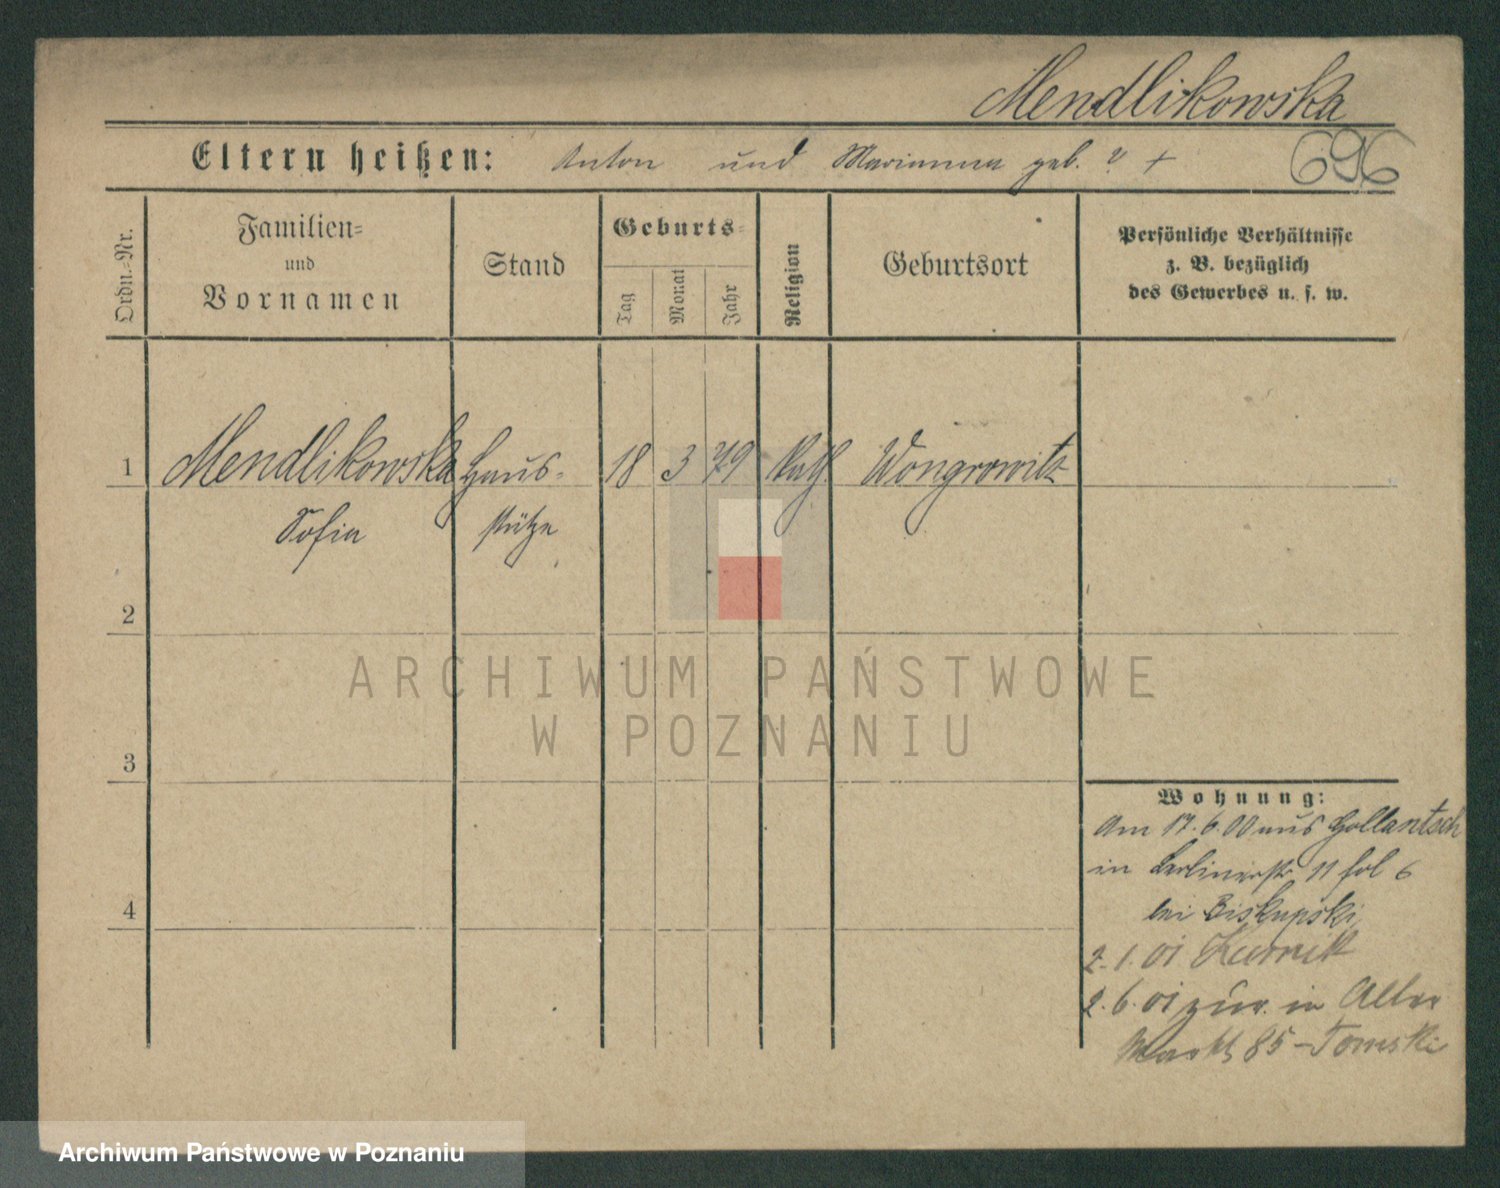 Mendlikowska
696
Eltern heißen: Anton und Marianna geb. ? +
Ordn.-Nr.
Familien=
und
Vornamen
Stand
Geburts=
Tag
Monat
Jahr
Religion
Geburtsort
Persönliche Verhältnisse
z. B. bezüglich
des Gewerbes u. s. w.
1 Mendlikowska Haus- 18 3 79 kath. Wongrowitz
Sofia stütze
2
3
4
Wohnung:
Am 17.6.00 aus Gollantsch
in Berlinerstr 11 fol 6
bei Biskupski
2.1.01 Kurnik
2.6.01 zur. in Alter
Markt 85 - Tomski
ARCHIWUM PAŃSTWOWE
W POZNANIU
Archiwum Państwowe w Poznaniu